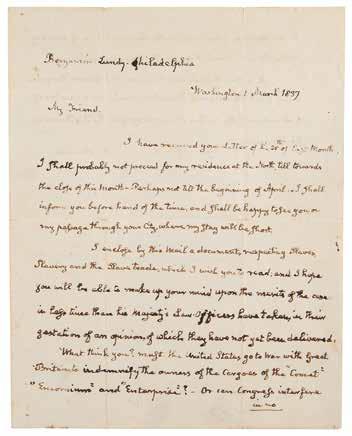 Benjamin Lundy. Philadelphia
Washington 1 March 1837
My Friend.
I have received your Letter of the 20th of last Month
I shall probably not proceed for my residence at the North, till towards
the close of this Month. Perhaps not till the beginning of April. I shall
inform you before hand of the time, and shall be happy to see you on
my passage through your City, where my stay will be short.
I enclose by this Mail a document, respecting Slaves,
Slavery and the Slave trade, which I wish you to read, and I hope
you will be able to make up your mind upon the merits of the case
in less time than his Majesty's Law-Officers have taken, in their
gestation of an opinion of which they have not yet been delivered.
What think you? must the United States go to War with Great
Britain to indemnify the owners of the Cargoes of the "Comet"
"Encomium" and "Enterprize"? - Or can Congress interfere